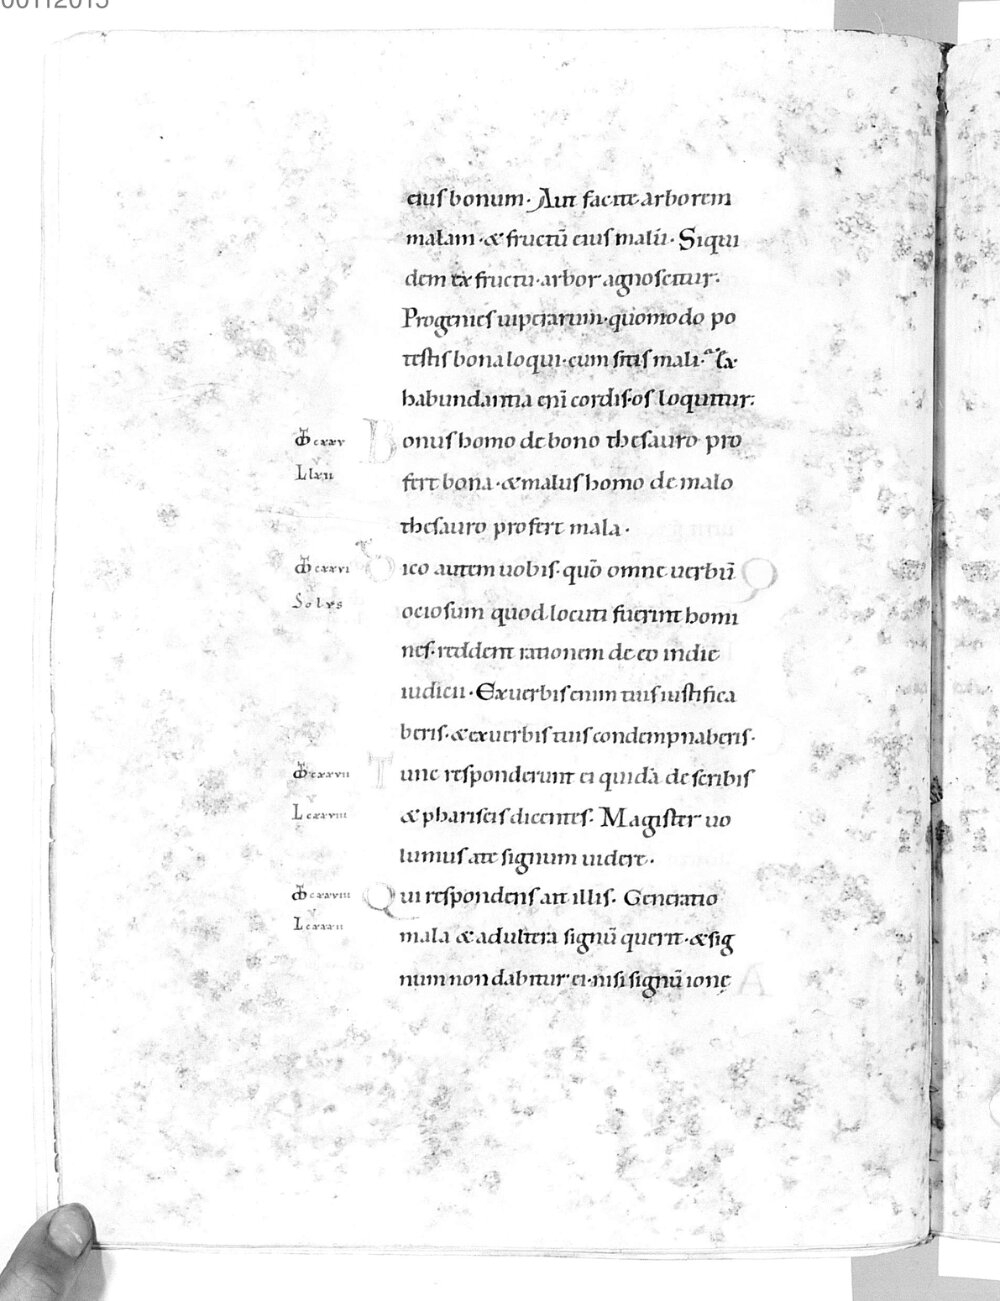 eius bonum· Aut facite arborem
malam·& fructū eius malū· Siqui
dem ex fructu·arbor agnoscitur·
Progenies uiperarum·quomodo po
testis bona loqui·cum sitis mali· Ex
habundantia enī cordis·os loquitur·
cxxv
Bonus homo de bono thesauro pro
Llxii
fert bona·& malus homo de malo
thesauro profert mala·
cxxvi
Dico autem uobis· quō omne uerbū
Solus
ociosum quod locuti fuerint homi
nes·reddent rationem de eo in die
iudicii· Ex uerbis enim tuis iustifica
beris·& ex uerbis tuis condempnaberis·
cxxvii
Tunc responderunt ei quidā de scribis
Lcxxviii
& phariseis dicentes· Magister uo
lumus a te signum uidere·
cxxviii
Qui respondens ait illis· Generatio
mala & adultera signū querit·& sig
num non dabitur ei·nisi signū ionę